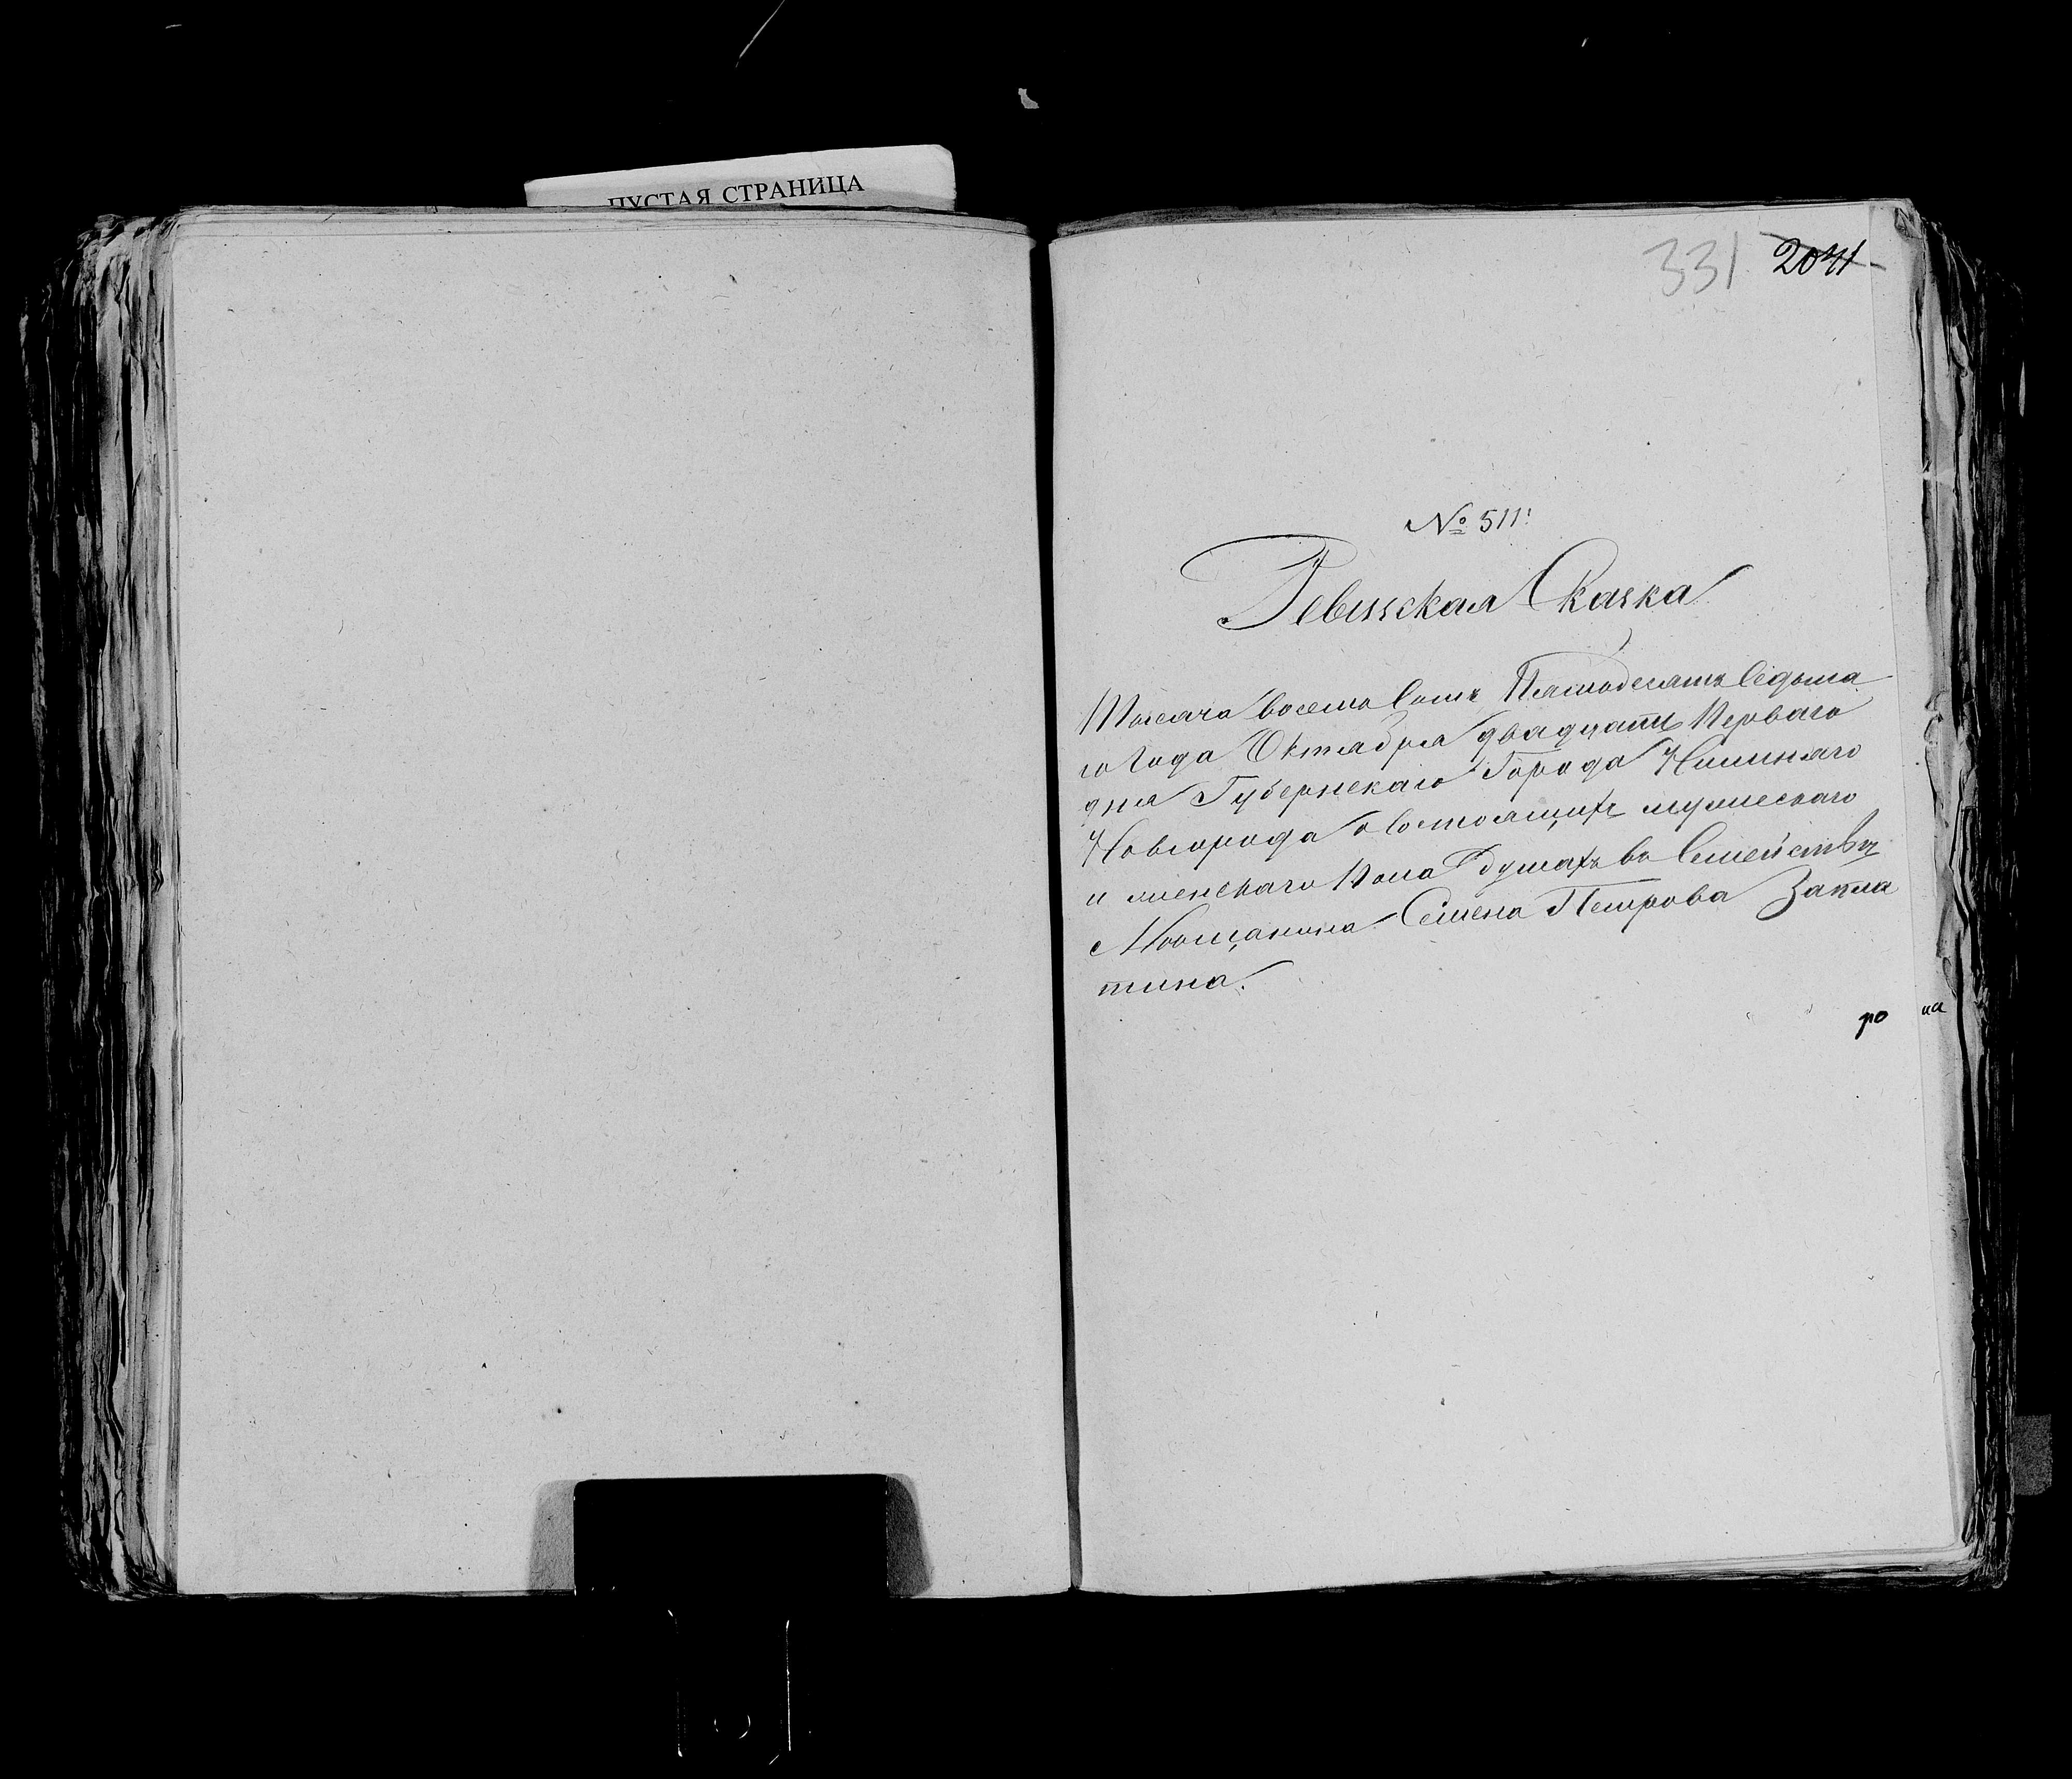 ПУСТАЯ СТРАНИЦА
331 2041
№ 511.
Ревизская Сказка
Тысяча восемь Сотъ Пятьдесятъ Седьма
го Года Октября двадцать Перваго
дня Губернскаго Города Нижняго
Новгорода о Состоящихъ мужескаго
и женскаго Пола душахъ въ Семействѣ
Мѣщанина Семена Петрова Запла
тина.
ро на